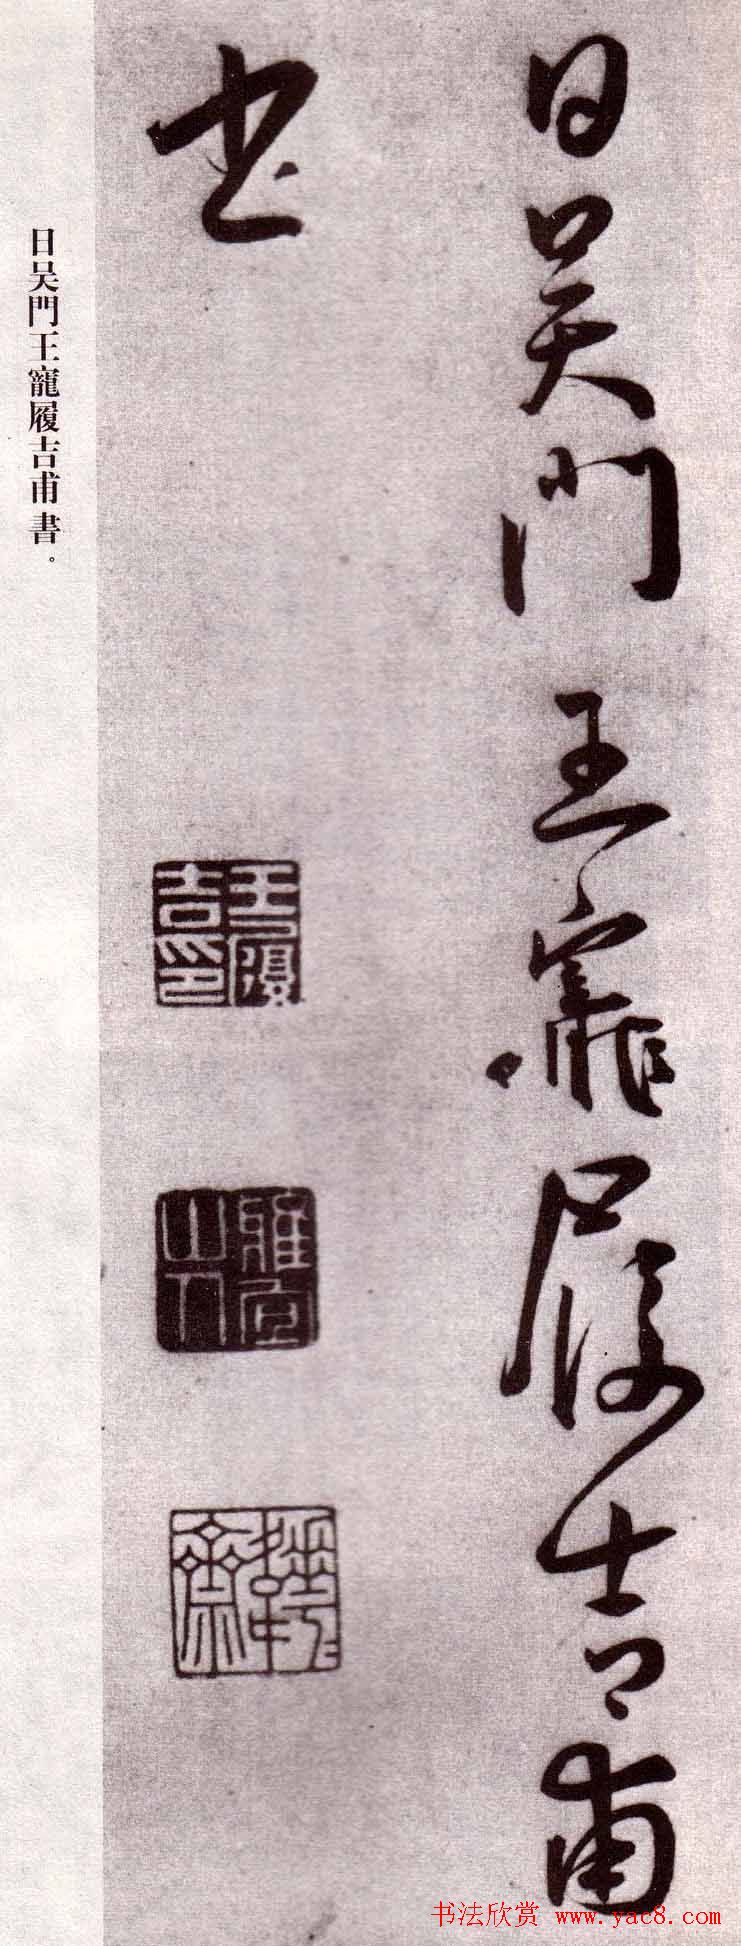 日吴門王寵履吉甫
書
王履
吉印
雅宜
山人
日吴門王寵履吉甫書。
书法欣赏 www.yac8.com